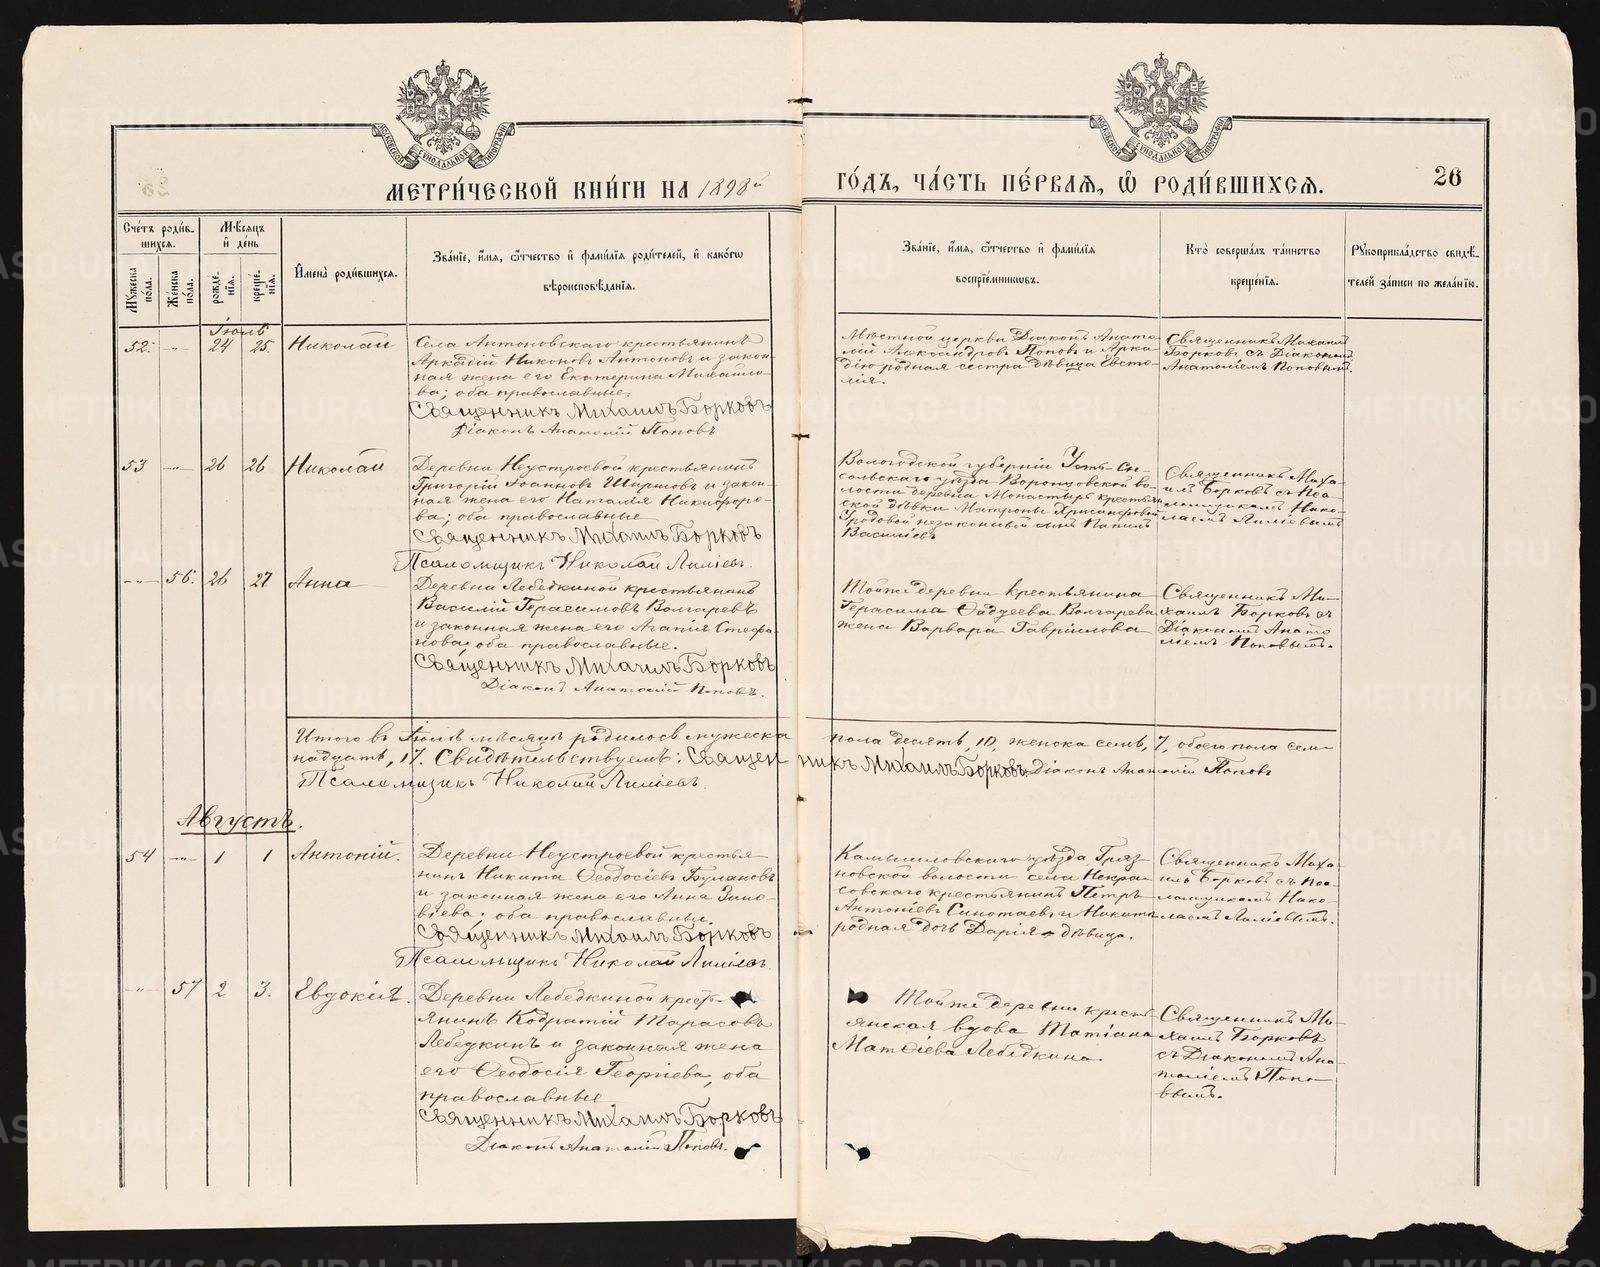 МЕТРИ́ЧЕСКОЙ КНИ́ГИ НА 1898й
ГО́ДЪ, ЧА́СТЬ ПЕ́РВАѦ, Ѽ РОДИ́ВШИХСѦ.
26
Сче́тъ роди́в-
шихся.
Мѣ́сяцъ
и҆ де́нь
Му́жеска по́ла.
Же́нска по́ла.
рожде́-
нїя.
креще́-
нїя.
И҆мена̀ роди́вшихся.
Зва́нїе, и҆́мя, ѻ҆́тчество и҆ фами́лїя роди́телей, и҆ како́гѡ
вѣроисповѣ́данїя.
Зва́нїе, и҆́мя, ѻ҆́тчество и҆ фами́лїя
воспрїе́мниковъ.
Кто̀ соверша́лъ та́инство
креще́нїя.
Рꙋкоприкла́дство свидѣ́-
телей за́писи по жела́нїю.
Іюль
52. —„— 24 25. Николай
Села Антоновскаго крестьянинъ
Аркадій Никоновъ Антоновъ и закон-
ная жена его Екатерина Михайло-
ва; оба православные.
Священникъ Михаилъ Борковъ
Діаконъ Анатолій Поповъ
Мѣстной церкви Діаконъ Анато-
лій Александровъ Поповъ и Арка-
дію родная сестра дѣвица Евсто-
лія.
Священникъ Михаилъ
Борковъ съ Діакономъ
Анатоліемъ Поповымъ.
53 —„— 26 26 Николай
Деревни Неустроевой крестьянинъ
Григорій Іоанновъ Ширшовъ и закон-
ная жена его Наталія Никифоро-
ва; оба православные
Священникъ Михаилъ Борковъ
Псаломщикъ Николай Лиліевъ.
Вологодской губерніи Усть-Сы-
сольскаго уѣзда Воронцовской во-
лости деревни Монастыръ крестьян-
ской дѣвки Матроны
незаконный сынъ
Василіевъ
Священникъ Миха-
илъ Борковъ съ Пса-
ломщикомъ Нико-
лаемъ Лиліевымъ
—„— 56. 26 27 Анна
Деревни Лебедкиной крестьянинъ
Василій Герасимовъ Волгаревъ
и законная жена его Агапія Стефа-
нова; оба православные.
Священникъ Михаилъ Борковъ
Діаконъ Анатолій Поповъ.
Тойже деревни крестьянина
Герасима Фаддеева Волгарева
жена Варвара Гавріилова
Священникъ Ми-
хаилъ Борковъ съ
Діакономъ Анато-
ліемъ Поповымъ.
Итого въ Іюлѣ мѣсяцѣ родилось мужеска пола десять, 10, женска семь, 7, обоего пола сем-
надцать, 17. Свидѣтельствуемъ: Священникъ Михаилъ Борковъ Діаконъ Анатолій Поповъ
Псаломщикъ Николай Лиліевъ.
Августъ.
54 —„— 1 1 Антоній.
Деревни Неустроевой крестья-
нинъ Никита Ѳеодосіевъ Булановъ
и законная жена его Анна Зино-
віева; оба православные.
Священникъ Михаилъ Борковъ
Псаломщикъ Николай Лиліевъ
Камышловскаго уѣзда, Гряз-
новской волости села Некра-
совскаго крестьянинъ Петръ
Антоніевъ и Никиты
родная дочь Дарія дѣвица.
Священникъ Миха-
илъ Борковъ съ Пса-
ломщикомъ Нико-
лаемъ Лиліевымъ.
—„— 57 2 3. Евдокія.
Деревни Лебедкиной кресть-
янинъ Кодратій Тарасовъ
Лебедкинъ и законная жена
его Ѳеодосія Георгіева, оба
православные
Священникъ Михаилъ Борковъ
Діаконъ Анатолій Поповъ.
Тойже деревни кресть-
янская вдова Татіана
Матѳіева Лебедкина.
Священникъ Ми-
хаилъ Борковъ
съ Діакономъ Ана-
толіемъ Попо-
вымъ.
METRIKI.GASO-URAL.RU